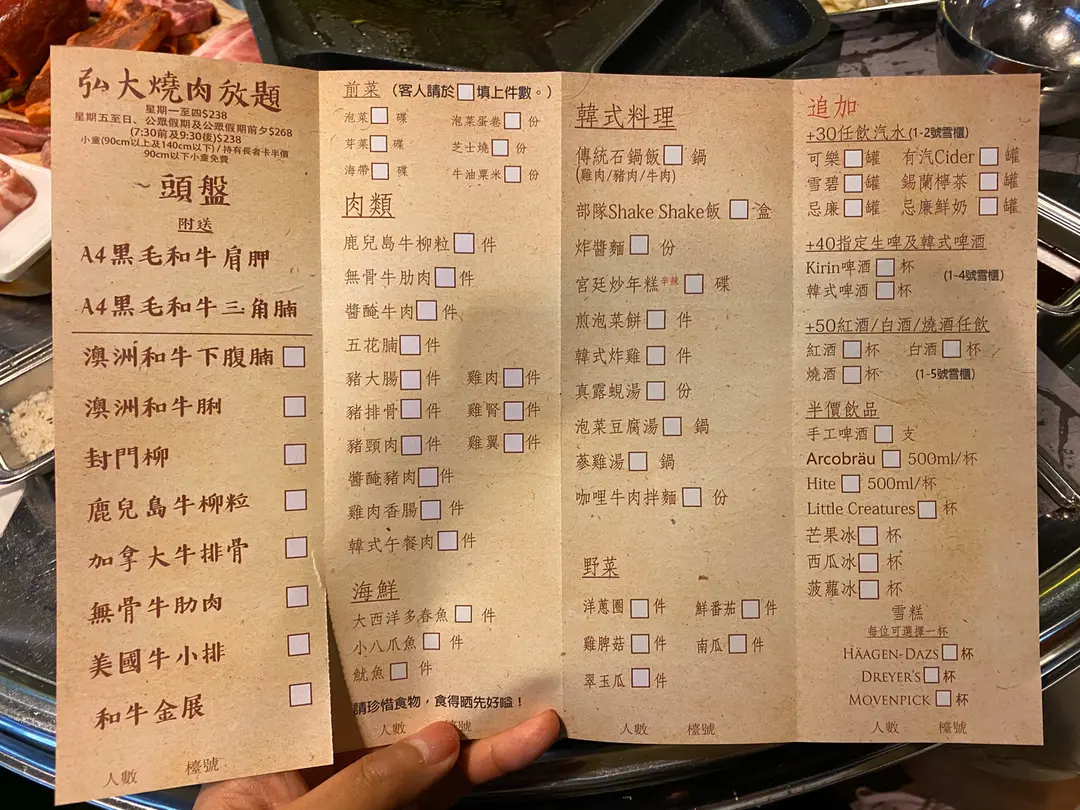 弘大燒肉放題
星期一至四$238
星期五至日、公眾假期及公眾假期前夕$268
(7:30前及9:30後)$238
小童(90cm以上及140cm以下)/持有長者卡半價
90cm以下小童免費
頭盤
附送
A4黑毛和牛肩胛
A4黑毛和牛三角腩
澳洲和牛下腹腩
澳洲和牛脷
封門柳
鹿兒島牛柳粒
加拿大牛排骨
無骨牛肋肉
美國牛小排
和牛金展
人數 檯號
前菜 (客人請於□填上件數。)
泡菜 碟 泡菜蛋卷 份
芽菜 碟 芝士燒 份
海帶 碟 牛油粟米 份
肉類
鹿兒島牛柳粒 件
無骨牛肋肉 件
醬醃牛肉 件
五花腩 件
豬大腸 件 雞肉 件
豬排骨 件 雞腎 件
豬頸肉 件 雞翼 件
醬醃豬肉 件
雞肉香腸 件
韓式午餐肉 件
海鮮
大西洋多春魚 件
小八爪魚 件
魷魚 件
請珍惜食物，食得晒先好嗌！
人數 檯號
韓式料理
傳統石鍋飯 鍋
(雞肉/豬肉/牛肉)
部隊Shake Shake飯 盒
炸醬麵 份
宮廷炒年糕辛辣 碟
煎泡菜餅 件
韓式炸雞 件
真露蜆湯 份
泡菜豆腐湯 鍋
蔘雞湯 鍋
咖哩牛肉拌麵 份
野菜
洋蔥圈 件 鮮番茄 件
雞脾菇 件 南瓜 件
翠玉瓜 件
人數 檯號
追加
+30任飲汽水(1-2號雪櫃)
可樂 罐 有汽Cider 罐
雪碧 罐 錫蘭檸茶 罐
忌廉 罐 忌廉鮮奶 罐
+40指定生啤及韓式啤酒
Kirin啤酒 杯 (1-4號雪櫃)
韓式啤酒 杯
+50紅酒/白酒/燒酒任飲
紅酒 杯 白酒 杯
燒酒 杯 (1-5號雪櫃)
半價飲品
手工啤酒 支
Arcobräu 500ml/杯
Hite 500ml/杯
Little Creatures 杯
芒果冰 杯
西瓜冰 杯
菠蘿冰 杯
雪糕
每位可選擇一杯
HÄAGEN-DAZS 杯
DREYER'S 杯
MOVENPICK 杯
人數 檯號